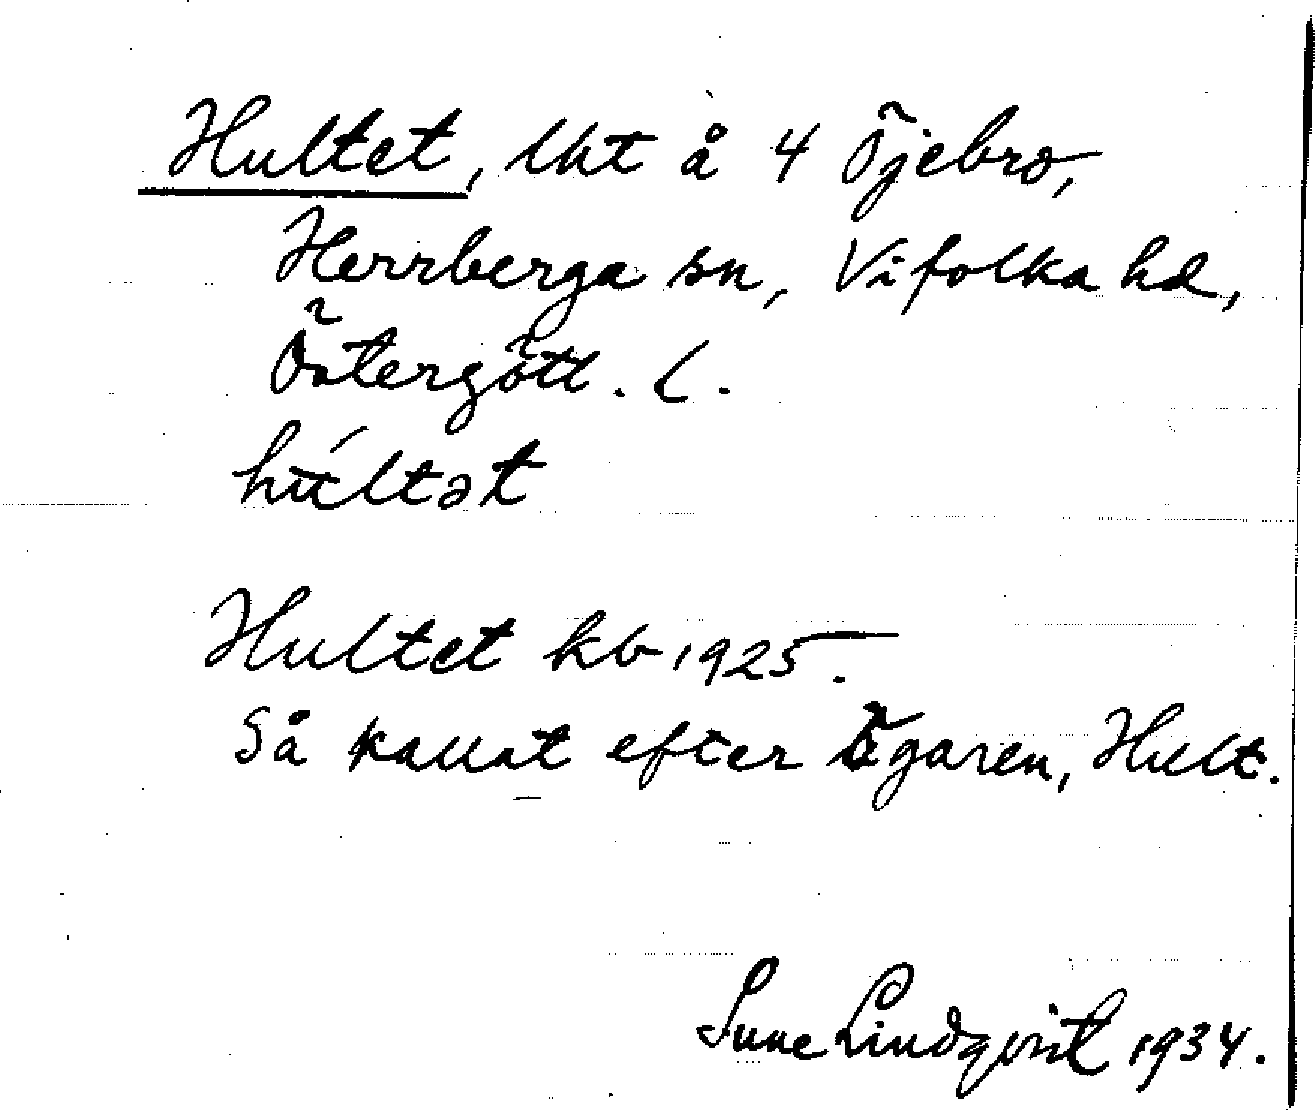 Hultet, lht å 4 Öjebro,
Herrberga sn, Vifolka hd,
Östergött. l.
húltət
Hultet kb 1925.
Så kallat efter ägaren, Hult.
Sune Lindqvist 1934.